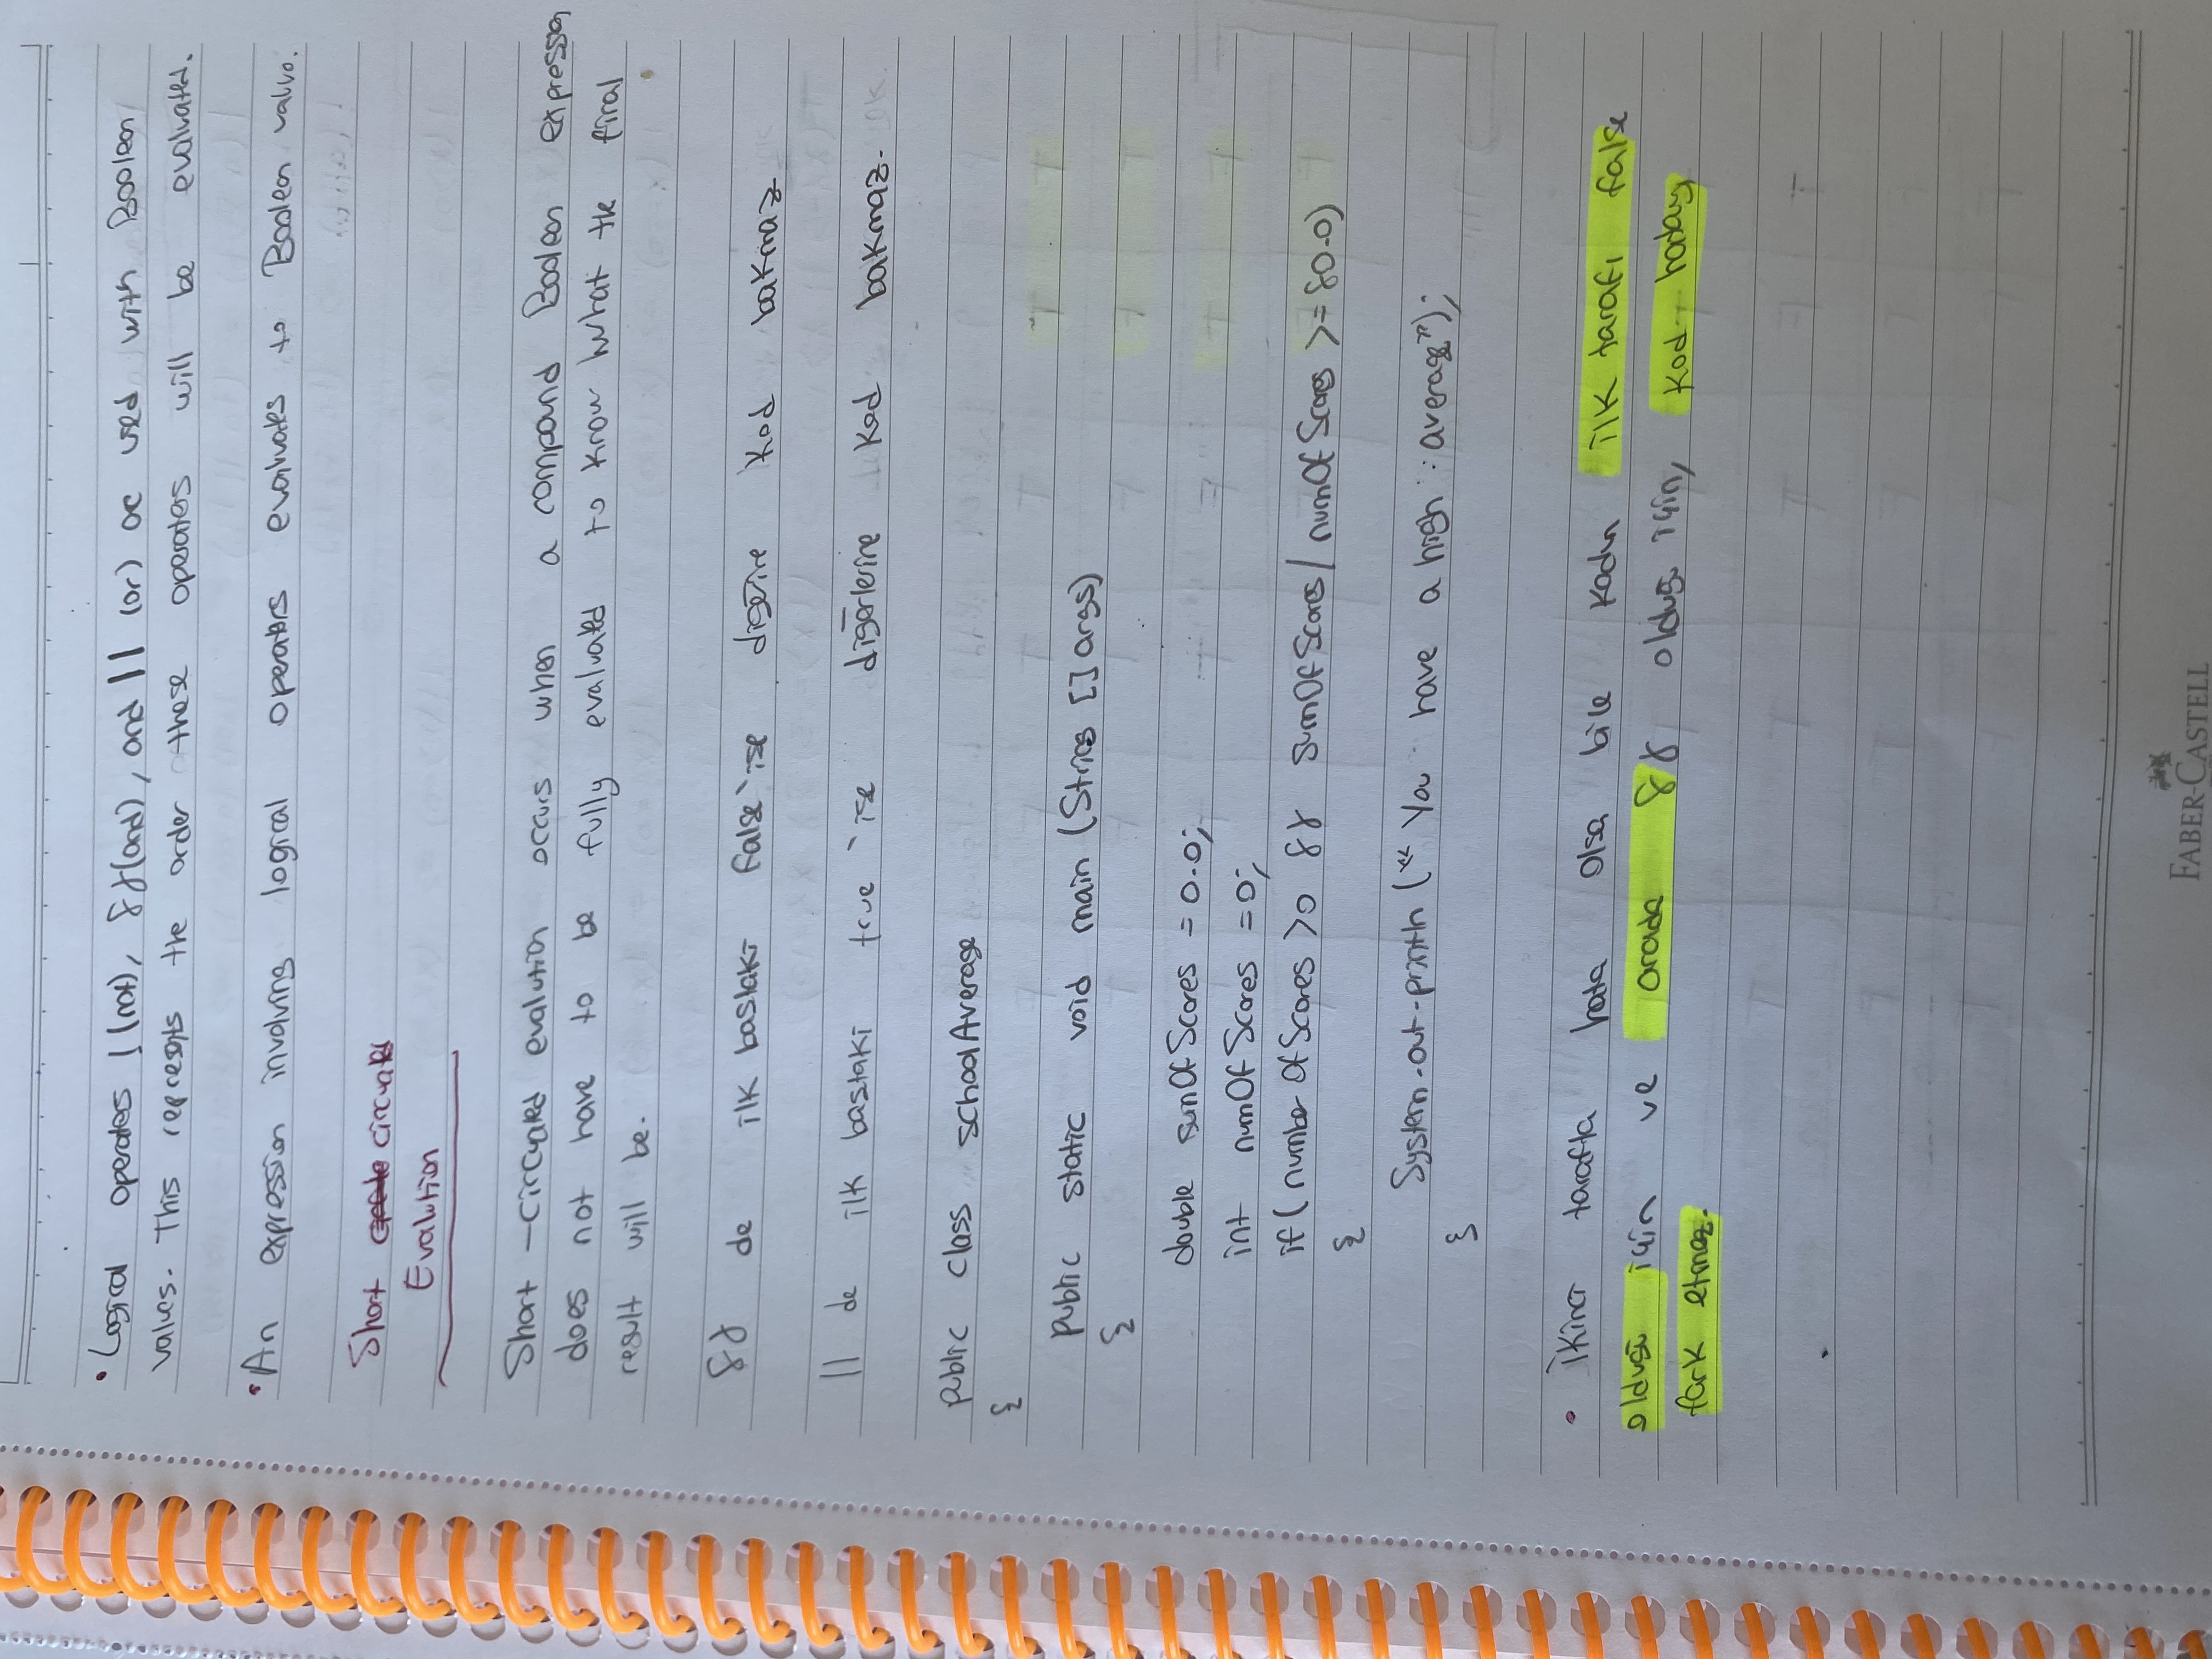 • Logical operators ! (not), && (and), and || (or) are used with Boolean
values. This represents the order these operators will be evaluated.
• An expression involving logical operators evaluates to Boolean value.
Short circuited
Evalution
Short-circuited evalution occurs when a compound Boolean expression
does not have to be fully evaluated to know what the final
result will be.
&& de ilk bastaki false ise digerine kod bakmaz
|| de ilk bastaki true ise digerlerine kod bakmaz.
public class schoolAverage
{
public static void main (String [] args)
{
double sumOfScores = 0.0;
int numOfScores = 0;
if ( numberOfScores > 0 && sumOfScores / numOfScores >= 80.0)
{
System.out.println ("You have a high average");
}
• İkinci tarafta hata olsa bile kodun ilk tarafı false
olduğu için ve orada && olduğu için, kod hatayı
fark etmez.
FABER-CASTELL